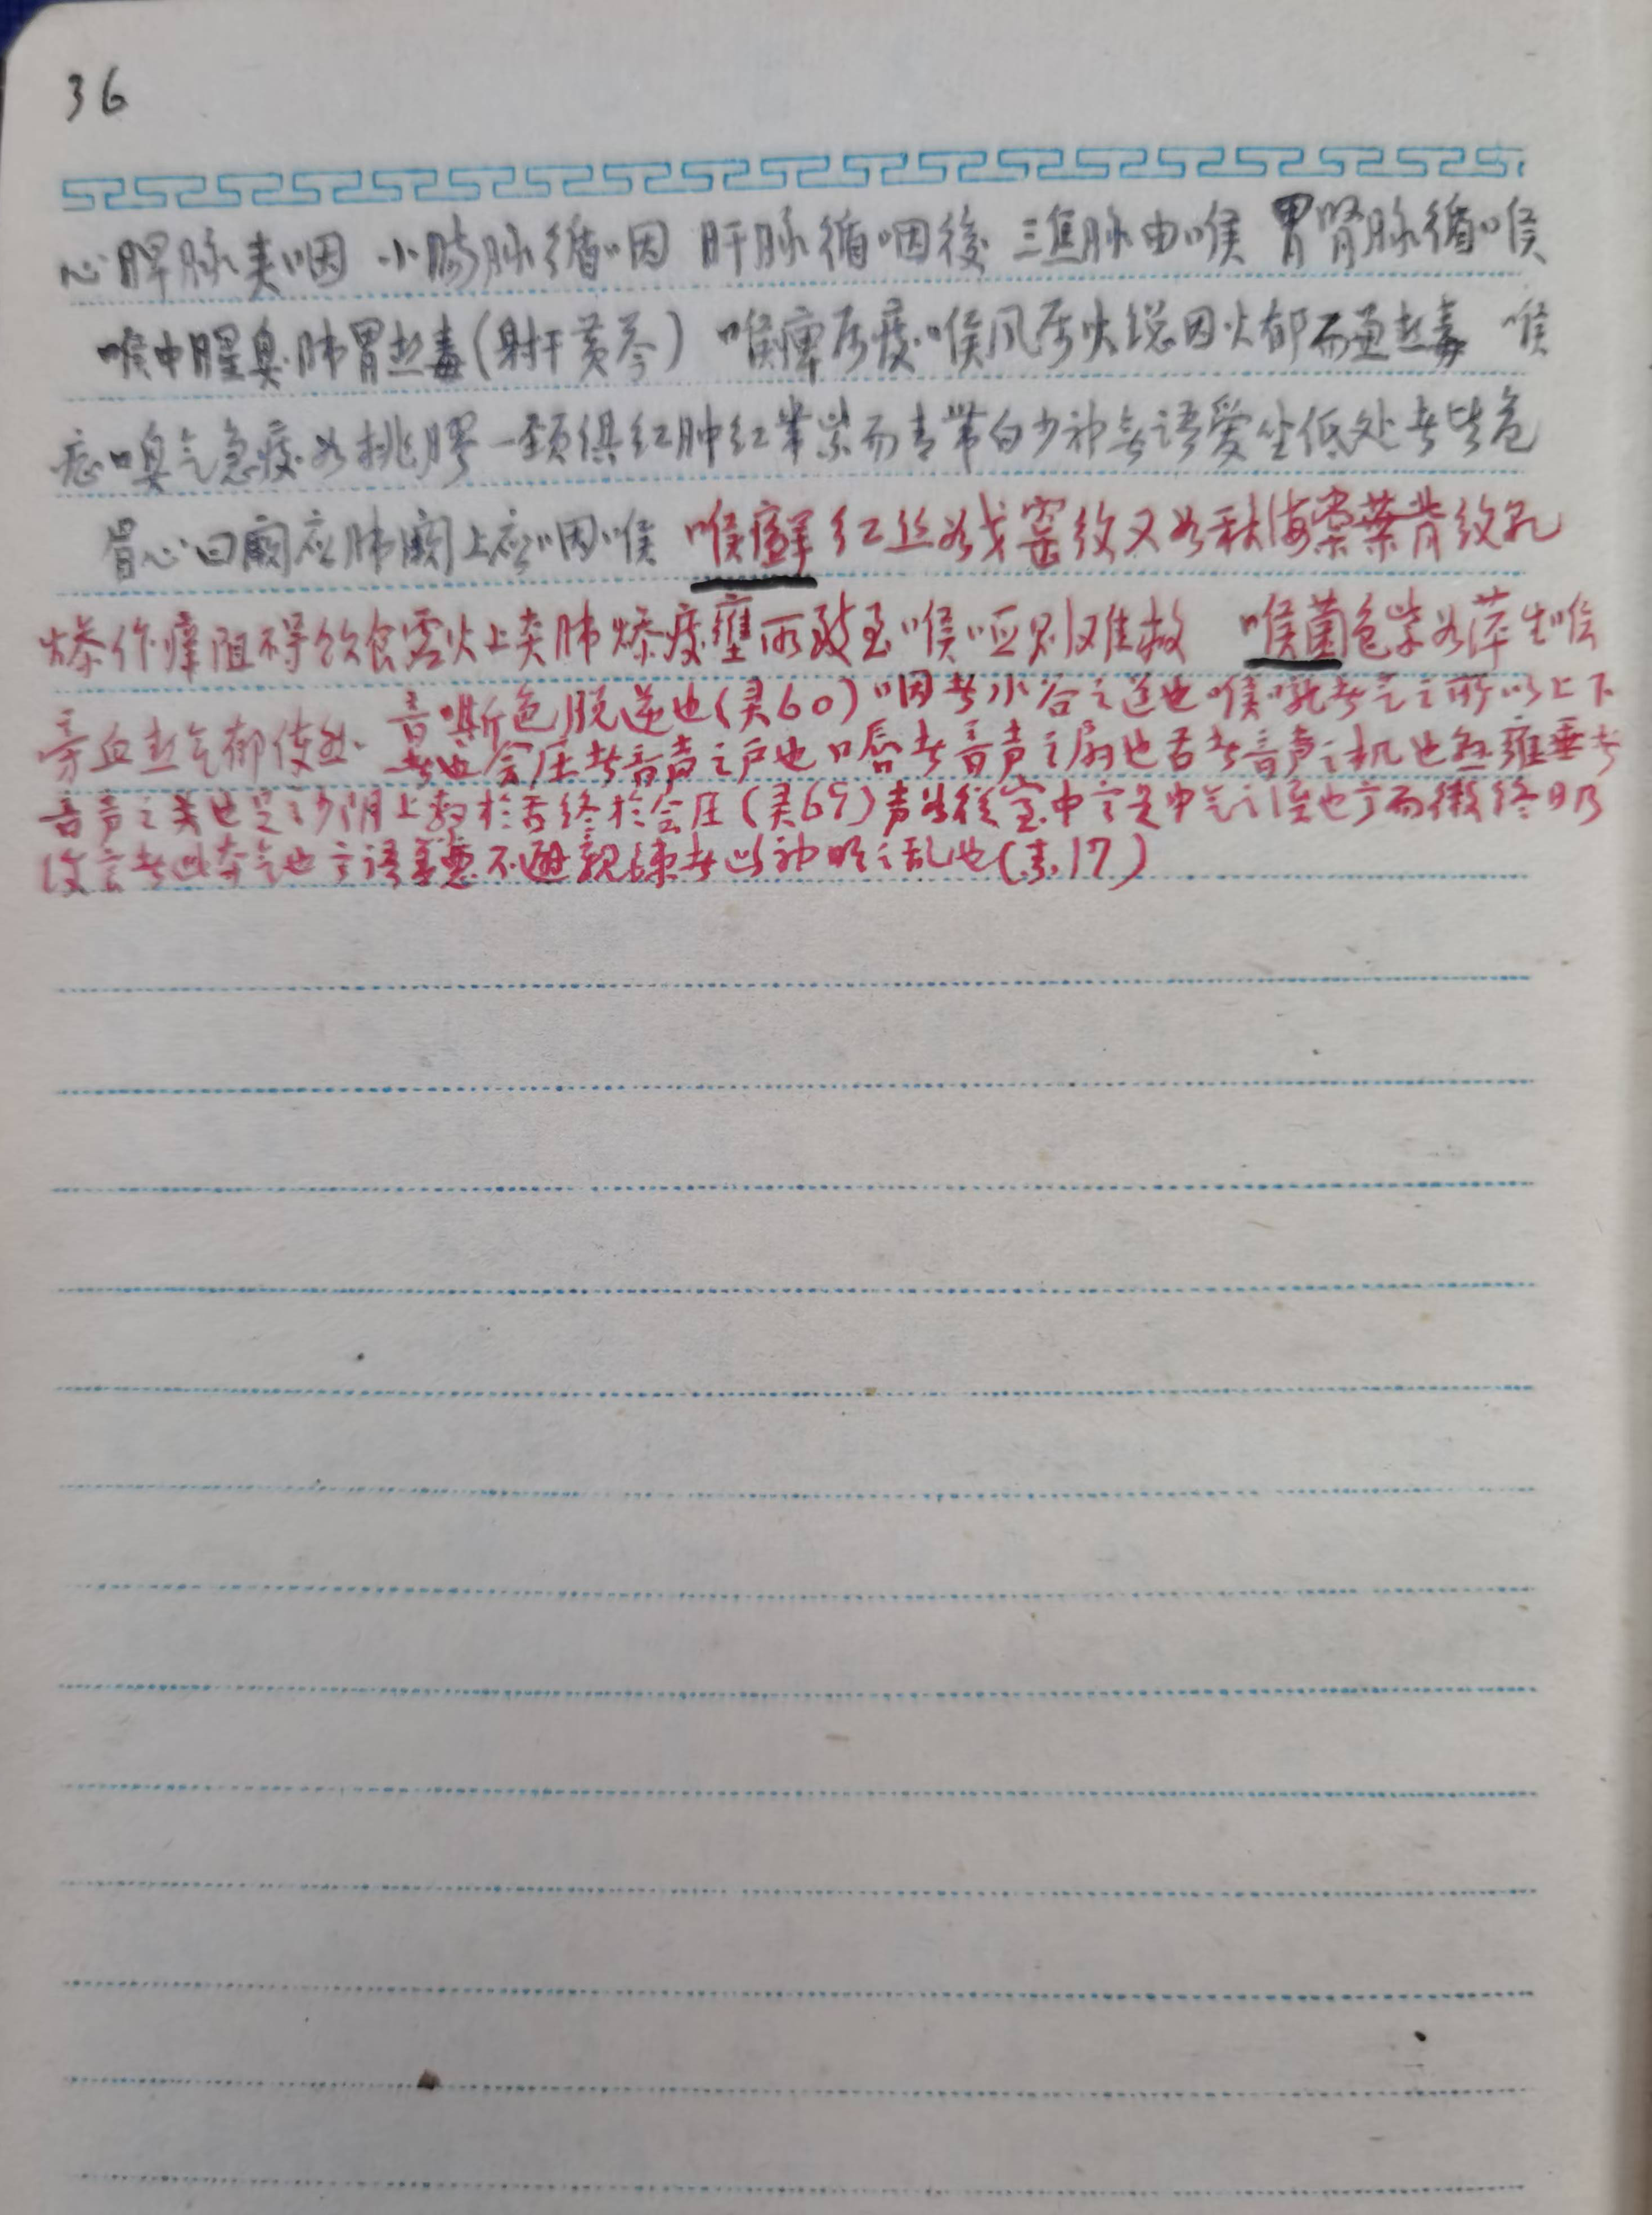 36
心脾脉夹咽 小肠脉循咽 肝脉循咽後 三焦脉由喉 胃肾脉循喉
喉中腥臭肺胃热毒(射干黄芩) 喉痹属痰喉风属火总因火郁而重热毒 喉
痣嗅气急痰如桃胶一颈俱红肿红带紫而青带白少神无语爱坐低处者皆危
眉心曰阙应肺阙上应咽喉 喉癣红丝如戈窑纹又如秋海棠叶背纹乳
燥作痒阻碍饮食虚火上炎肺燥痰壅所致至喉哑则难救 喉菌色紫如萍生喉
旁血热气郁使然 音嘶色脱逆也(灵60) 咽者水谷之道也喉咙者气之所以上下
者也会厌者音声之户也口唇者音声之扇也舌者音声之机也悬雍垂者
音声之关也足之少阴上系於舌终於会厌(灵69)声如從室中言是中气之湿也言而微终日乃
復言者此夺气也言语善恶不避親疎者此神明之乱也(素17)